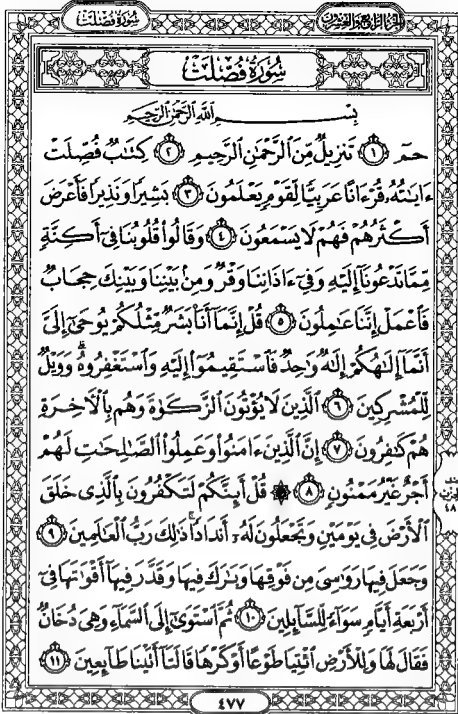 الجزء الرابع والعشرون
سورة فصلت
سُورَةُ فُصِّلَتْ
بِسْمِ ٱللَّهِ ٱلرَّحْمَٰنِ ٱلرَّحِيمِ
حمٓ ١ تَنزِيلٌ مِّنَ ٱلرَّحْمَٰنِ ٱلرَّحِيمِ ٢ كِتَٰبٌ فُصِّلَتْ
ءَايَٰتُهُۥ قُرْءَانًا عَرَبِيًّا لِّقَوْمٍ يَعْلَمُونَ ٣ بَشِيرًا وَنَذِيرًا فَأَعْرَضَ
أَكْثَرُهُمْ فَهُمْ لَا يَسْمَعُونَ ٤ وَقَالُوا۟ قُلُوبُنَا فِىٓ أَكِنَّةٍ
مِّمَّا تَدْعُونَآ إِلَيْهِ وَفِىٓ ءَاذَانِنَا وَقْرٌ وَمِنۢ بَيْنِنَا وَبَيْنِكَ حِجَابٌ
فَٱعْمَلْ إِنَّنَا عَٰمِلُونَ ٥ قُلْ إِنَّمَآ أَنَا۠ بَشَرٌ مِّثْلُكُمْ يُوحَىٰٓ إِلَىَّ
أَنَّمَآ إِلَٰهُكُمْ إِلَٰهٌ وَٰحِدٌ فَٱسْتَقِيمُوٓا۟ إِلَيْهِ وَٱسْتَغْفِرُوهُ ۗ وَوَيْلٌ
لِّلْمُشْرِكِينَ ٦ ٱلَّذِينَ لَا يُؤْتُونَ ٱلزَّكَوٰةَ وَهُم بِٱلْءَاخِرَةِ
هُمْ كَٰفِرُونَ ٧ إِنَّ ٱلَّذِينَ ءَامَنُوا۟ وَعَمِلُوا۟ ٱلصَّٰلِحَٰتِ لَهُمْ
أَجْرٌ غَيْرُ مَمْنُونٍ ٨ ۞ قُلْ أَئِنَّكُمْ لَتَكْفُرُونَ بِٱلَّذِى خَلَقَ
ٱلْأَرْضَ فِى يَوْمَيْنِ وَتَجْعَلُونَ لَهُۥٓ أَندَادًا ۚ ذَٰلِكَ رَبُّ ٱلْعَٰلَمِينَ ٩
وَجَعَلَ فِيهَا رَوَٰسِىَ مِن فَوْقِهَا وَبَٰرَكَ فِيهَا وَقَدَّرَ فِيهَآ أَقْوَٰتَهَا فِىٓ
أَرْبَعَةِ أَيَّامٍ سَوَآءً لِّلسَّآئِلِينَ ١٠ ثُمَّ ٱسْتَوَىٰٓ إِلَى ٱلسَّمَآءِ وَهِىَ دُخَانٌ
فَقَالَ لَهَا وَلِلْأَرْضِ ٱئْتِيَا طَوْعًا أَوْ كَرْهًا قَالَتَآ أَتَيْنَا طَآئِعِينَ ١١
٤٧٧